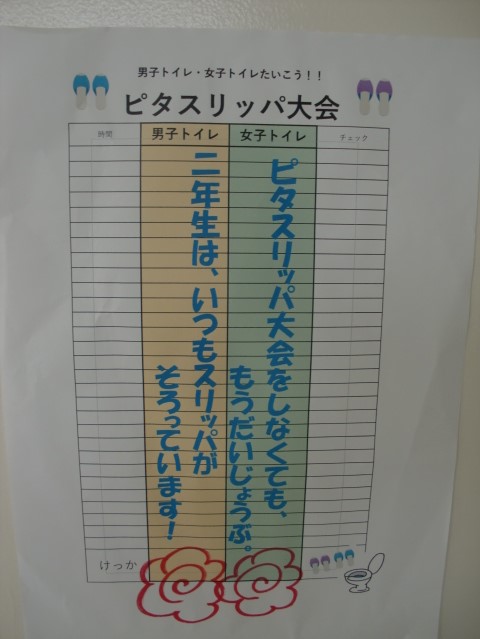 男子トイレ・女子トイレたいこう！！
ピタスリッパ大会
時間 男子トイレ 女子トイレ チェック
ピタスリッパ大会をしなくても、
もうだいじょうぶ。
二年生は、いつもスリッパが
そろっています！
けっか